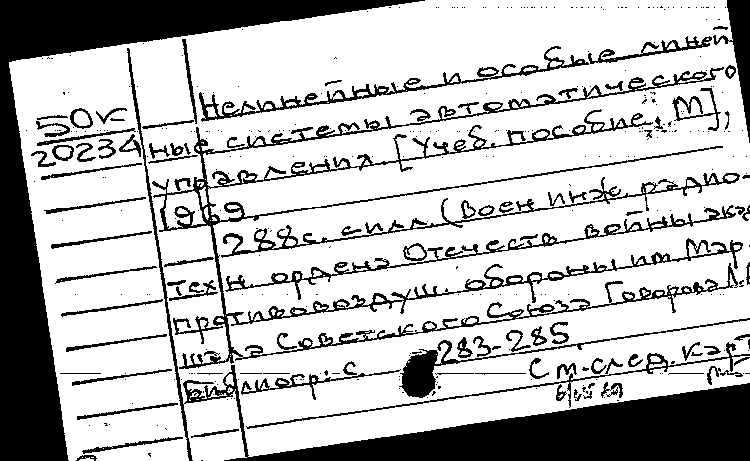 Нелинейные и особые линей
50к
20234 ные системы автоматического
управления. [Учеб. пособие. М],
1969.
288с. с илл. (Воен инж. радио-
техн. ордена Отечеств войны ака
противовоздуш. обороны им Мар.
шала Советского Союза Говорова Л.
Библиогр: с. 283-285.
См. след. карт